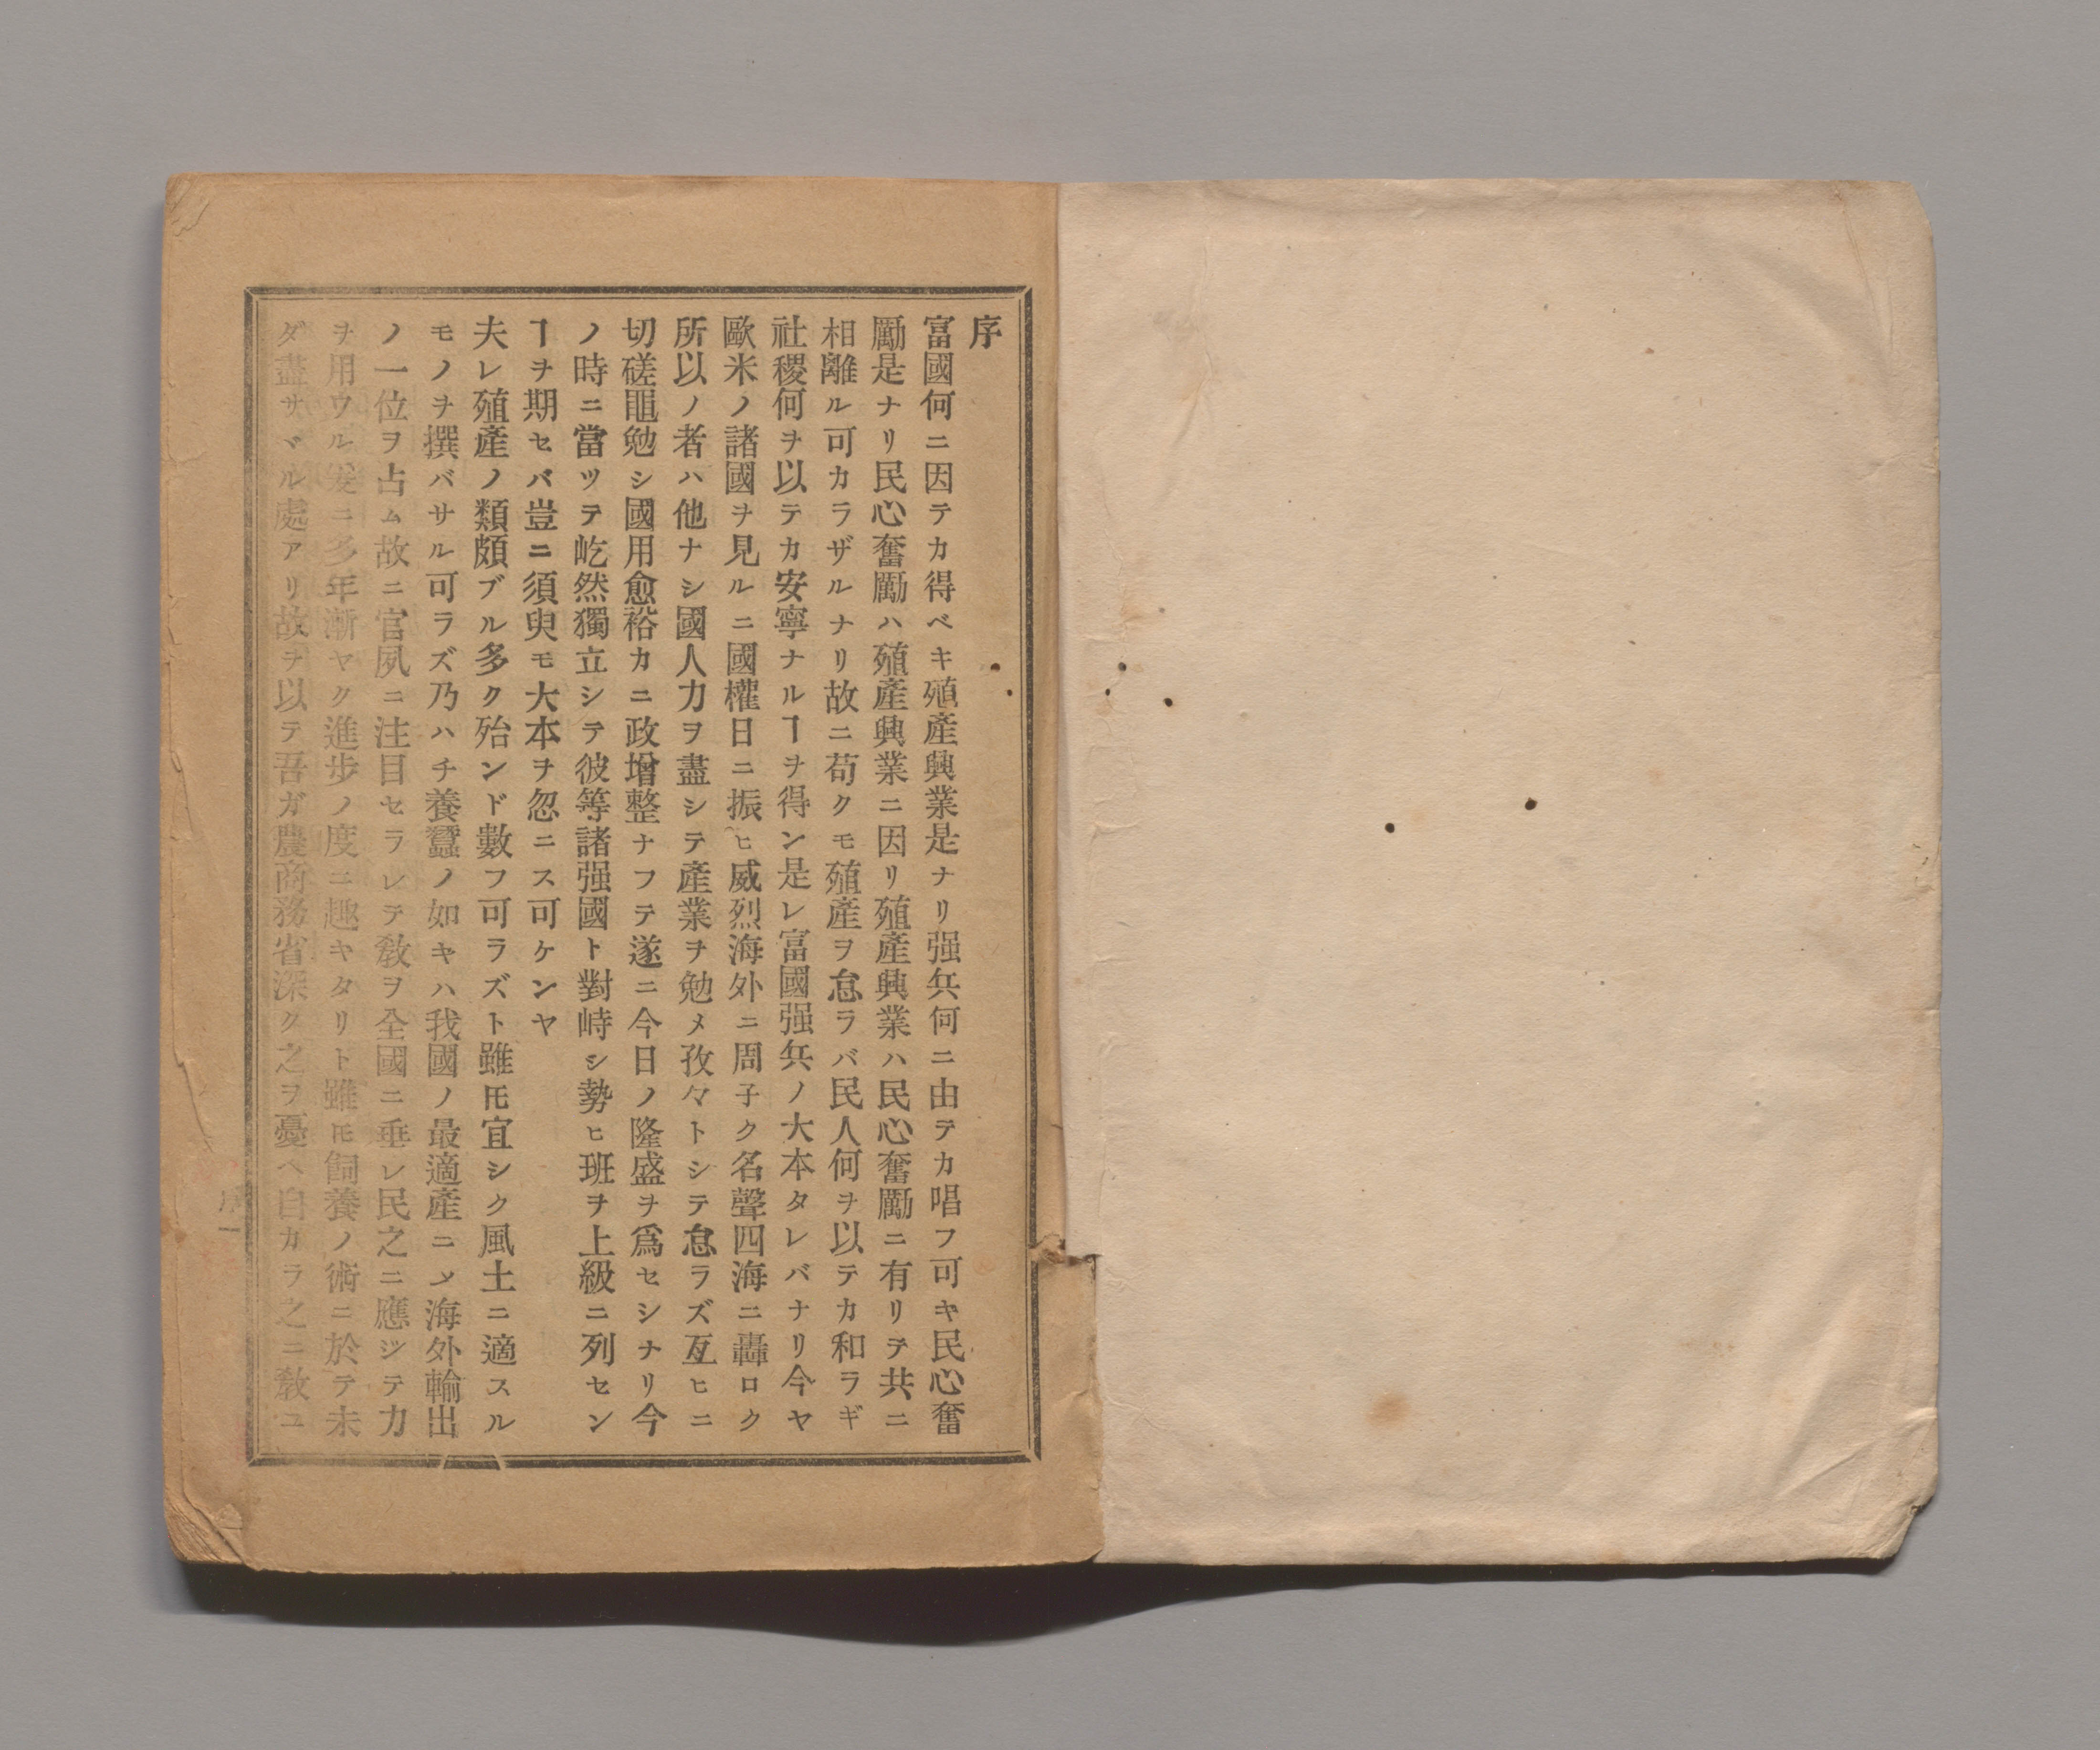 序
富國何ニ因テカ得ベキ殖產興業是ナリ强兵何ニ由テカ唱フ可キ民心奮
勵是ナリ民心奮勵ハ殖產興業ニ因リ殖產興業ハ民心奮勵ニ有リテ共ニ
相離ル可カラザルナリ故ニ苟クモ殖產ヲ怠ラバ民人何ヲ以テカ和ラギ
社稷何ヲ以テカ安寧ナルヿヲ得ン是レ富國强兵ノ大本タレバナリ今ヤ
歐米ノ諸國ヲ見ルニ國權日ニ振ヒ威烈海外ニ周子ク名聲四海ニ轟ロク
所以ノ者ハ他ナシ國人力ヲ盡シテ產業ヲ勉メ孜々トシテ怠ラズ互ヒニ
切磋黽勉シ國用愈裕カニ政增整ナフテ遂ニ今日ノ隆盛ヲ爲セシナリ今
ノ時ニ當ツテ屹然獨立シテ彼等諸强國ト對峙シ勢ヒ班ヲ上級ニ列セン
ヿヲ期セバ豈ニ須臾モ大本ヲ忽ニス可ケンヤ
夫レ殖產ノ類頗ブル多ク殆ンド數フ可ラズト雖𪜈宜シク風土ニ適スル
モノヲ撰バサル可ラズ乃ハチ養蠶ノ如キハ我國ノ最適產ニメ海外輸出
ノ一位ヲ占ム故ニ官夙ニ注目セラレテ敎ヲ全國ニ垂レ民之ニ應ジテ力
ヲ用ウル爰ニ多年漸ヤク進步ノ度ニ趣キタリト雖𪜈飼養ノ術ニ於テ未
ダ盡サヾル處アリ故ヲ以テ吾ガ農商務省深ク之ヲ憂ヘ自カラ之ニ敎ユ
序一